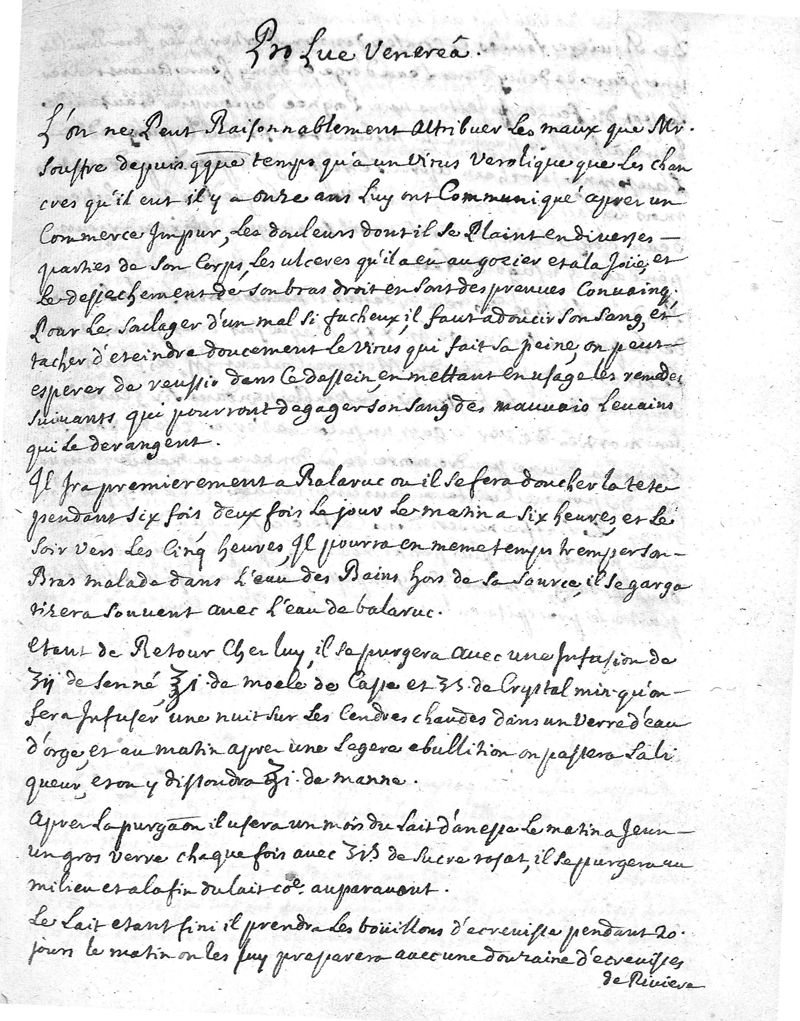 Pro Lue Venereâ.
L'on ne Peut Raisonnablement attribuer Les maux que Mr.
souffre depuis qque temps qu'a un Virus Verolique que Les chan
cres qu'il eut il y a onze ans Luy ont Communiqué apres un
Commerce Impur, Les douleurs dont il se Plaint en diverses –
parties de son Corps, Les ulceres qu'il a eu au gozier et a la Joüe, et
Le dessechement de son bras droit en sont des preuves Convainq.
Pour Le soulager d'un mal si facheux, il faut adoucir son sang, et
tacher d'eteindre doucement Le Virus qui fait sa peine, on peut –
esperer de reussir dans Ce dessein, en mettant en usage Les remedes
suivants qui pourront degager son sang des mauvais Levains
qui Le derangent.
Il Ira premierement a Balaruc ou il se fera doucher La tete
pendant six fois deux fois Le jour Le matin a six heures, et Le
soir vers Les Cinq heures, Il pourra en meme temps tremper son –
Bras malade dans L'eau des Bains hors de sa source, il se garga
rizera souvent avec L'eau de balaruc.
Etant de Retour Chez luy, il se purgera avec une Infusion de
ʒij de senné ℥j. de moele de Casse et ʒß. de Crystal min. qu'on –
fera Infuser une nuit sur Les Cendres chaudes dans un Verre d'eau
d'orge, et au matin apres une Legere ebullition on passera La li
queur, et on y dissoudra ℥j. de manne.
Apres La purgaon il usera un mois du Lait d'anesse Le matin a Jeun –
un gros verre chaque fois avec ʒiß de sucre rosat, il se purgera au
milieu et a la fin du lait coe. auparavant.
Le Lait etant fini il prendra Les boüillons d'ecrevisse pendant 20.
jours le matin on les luy preparera avec une douzaine d'ecrevisses
de Riviere